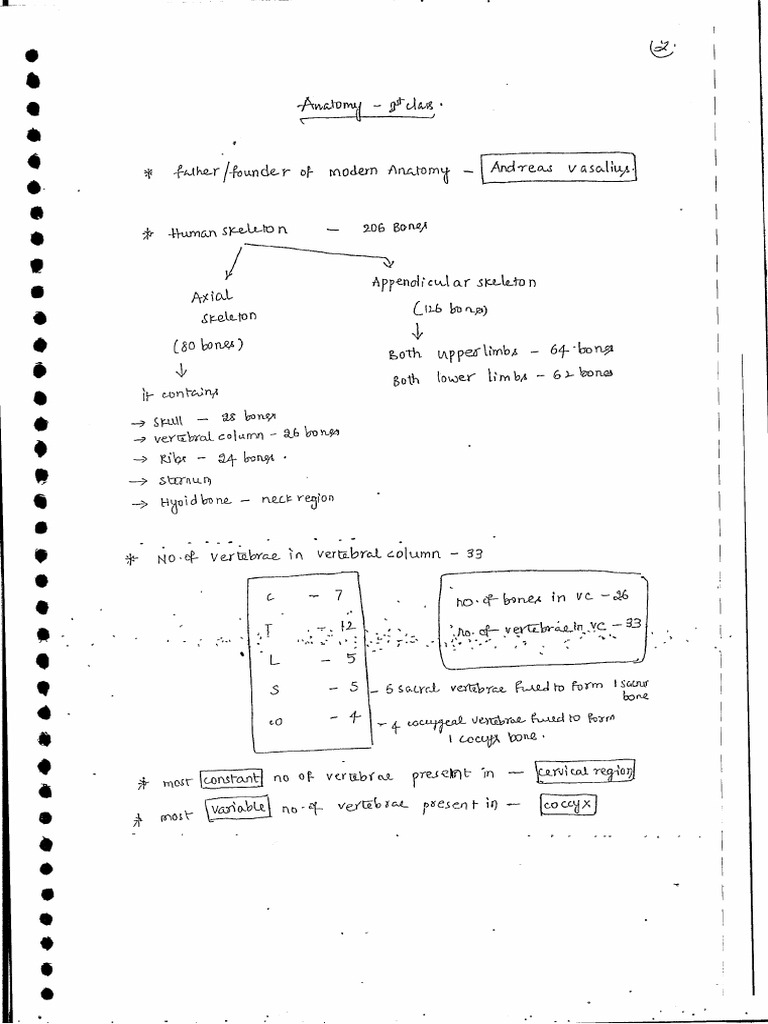 2.
Anatomy - 1st class.
* Father/founder of modern Anatomy - Andreas Vasalius.
* Human skeleton - 206 Bones
Axial skeleton
(80 bones)
it contains
→ Skull - 28 bones
→ vertebral column - 26 bones
→ Ribs - 24 bones.
→ sternum
→ Hyoid bone - neck region
Appendicular skeleton
(126 bones)
Both upper limbs - 64 bones
Both lower limbs - 62 bones
* NO. of vertebrae in vertebral column - 33
C - 7
T - 12
L - 5
S - 5 - 5 sacral vertebrae fused to form 1 sacrum bone
co - 4 - 4 coccygeal vertebrae fused to form
1 coccyx bone.
no. of bones in vc - 26
no. of vertebrae in vc - 33
* most constant no of vertebrae present in - cervical region
* most variable no. of vertebrae present in - coccyx